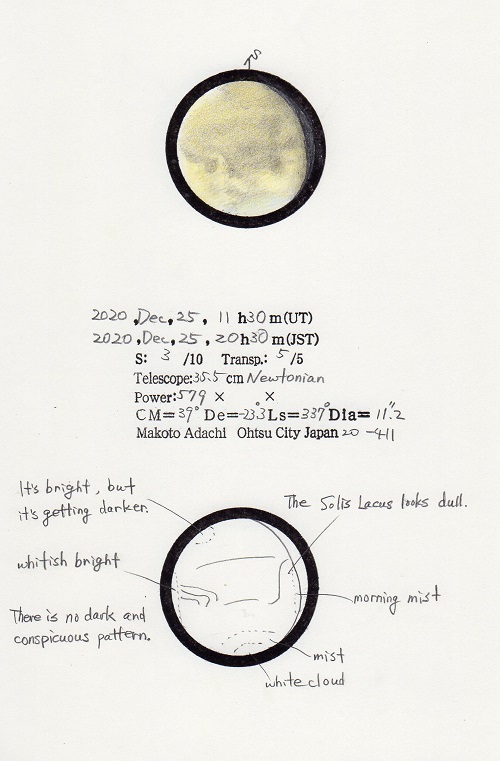 2020, Dec, 25, 11 h30 m(UT)
2020, Dec, 25, 20 h30 m(JST)
S: 3 /10 Transp.: 5 /5
Telescope:35.5 cm Newtonian
Power:579 × ×
CM=39° De=-23.3° Ls=337° Dia= 11."2
Makoto Adachi Ohtsu City Japan 20 -411
It's bright, but
it's getting darker.
The Solis Lacus looks dull.
whitish bright
morning mist
There is no dark and
conspicuous pattern.
mist
white cloud